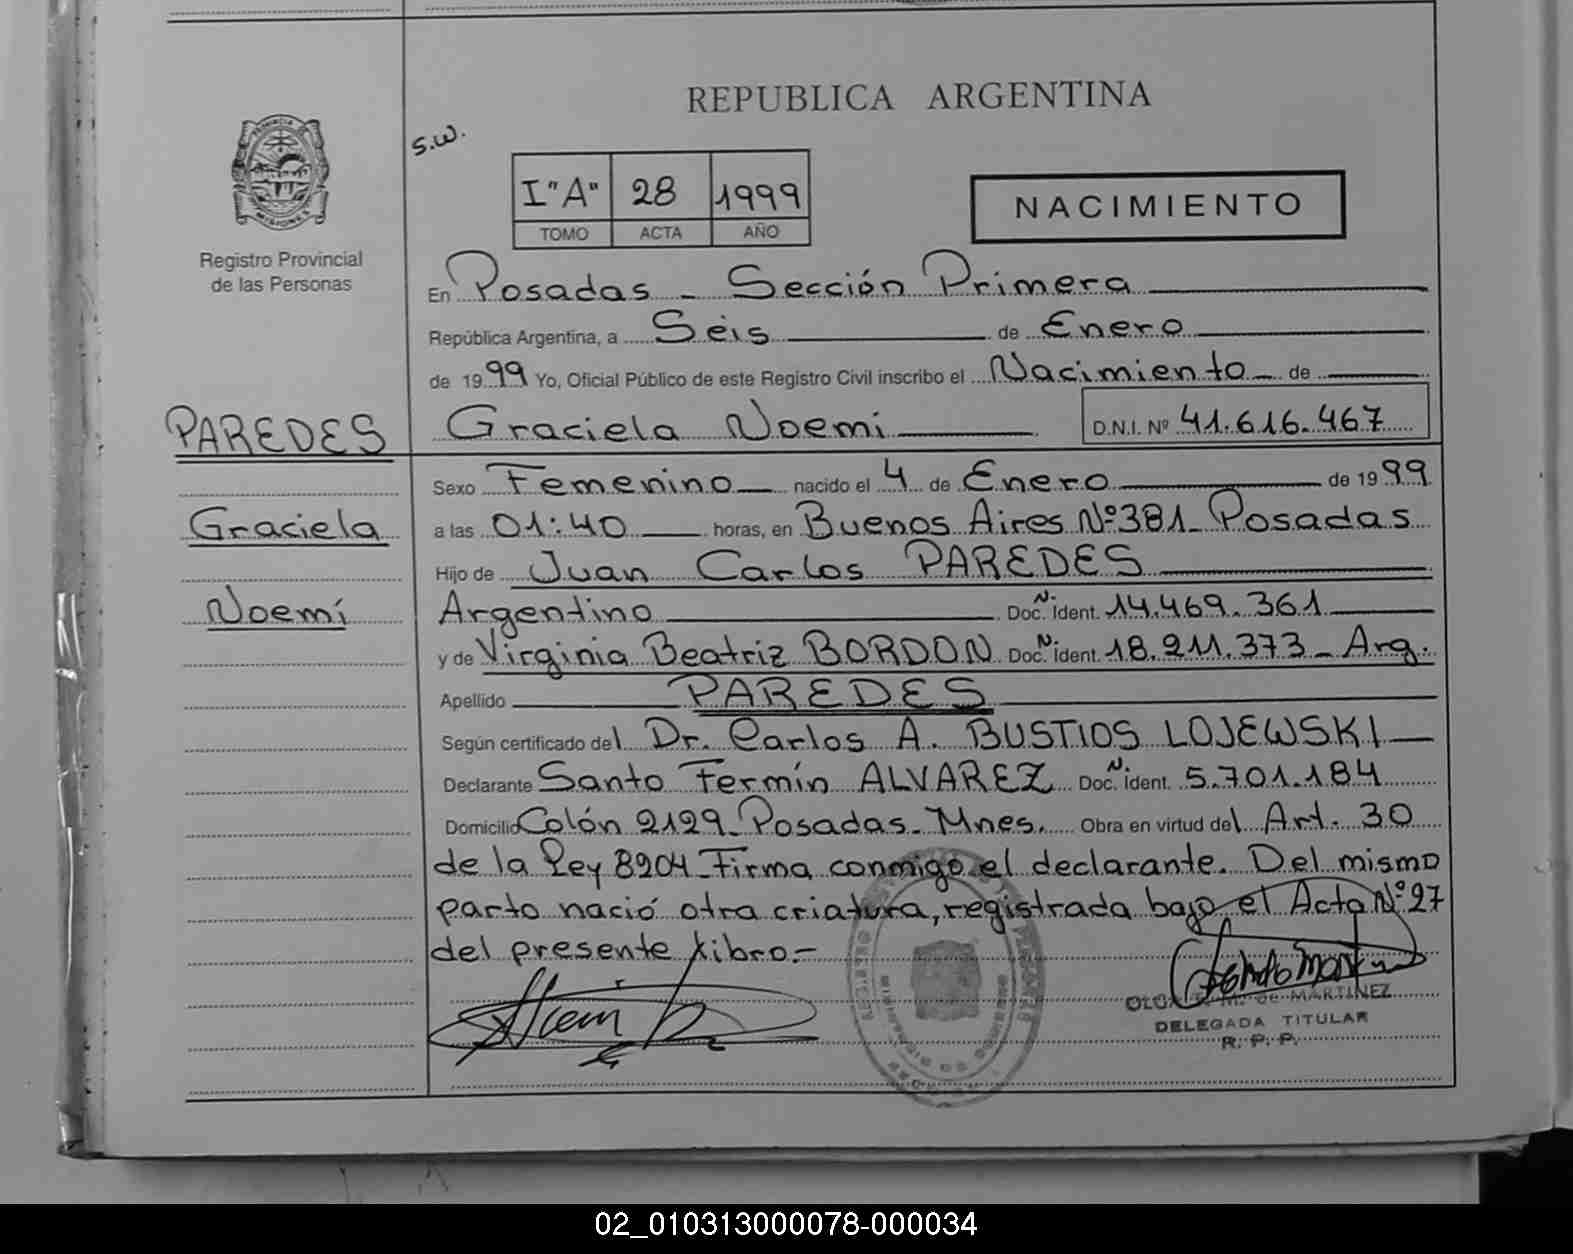 REPUBLICA ARGENTINA
S.W.
PROVINCIA DE
MISIONES
Registro Provincial
de las Personas
I "A" 28 1999
TOMO ACTA AÑO
NACIMIENTO
En Posadas - Sección Primera
República Argentina, a Séis de Enero
de 1999 Yo, Oficial Público de este Registro Civil inscribo el Nacimiento de
Graciela Noemi D.N.I. Nº 41.616.467
PAREDES
Graciela
Noemí
Sexo Femenino nacido el 4 de Enero de 1999
a las 01:40 horas, en Buenos Aires Nº 381 - Posadas
Hijo de Juan Carlos PAREDES
Argentino Doc. N. Ident. 14.469.361
y de Virginia Beatriz BORDON Doc. N. Ident. 18.211.373 - Arg.
Apellido PAREDES
Según certificado del Dr. Carlos A. BUSTIOS LOJEWSKI
Declarante Santo Fermín ALVAREZ Doc. N. Ident. 5.701.184
Domicilio Colón 2129 - Posadas - Mnes. Obra en virtud del Art. 30
de la Ley 8204 - Firma conmigo el declarante. Del mismo
parto nació otra criatura, registrada bajo el Acta Nº 27
del presente Libro.-
DE MARTINEZ
DELEGADA TITULAR
R. P. P.
02_010313000078-000034